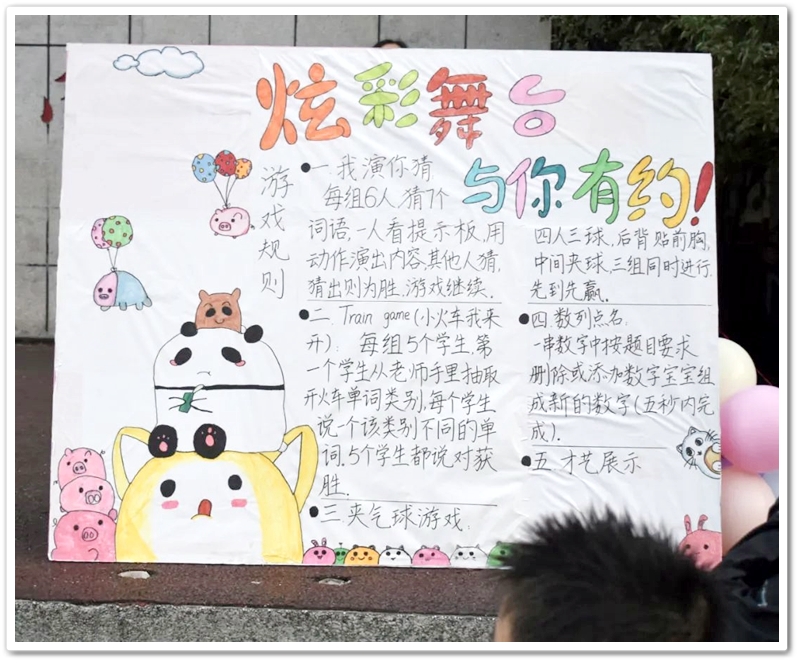 炫彩舞台
与你有约!
游戏规则
一.我演你猜
每组6人,猜7个
词语,一人看提示板,用
动作演出内容,其他人猜,
猜出则为胜,游戏继续.
二.Train game(小火车我来
开): 每组5个学生,第
一个学生从老师手里抽取
开火车单词类别,每个学生
说一个该类别不同的单
词.5个学生都说对获
胜.
三.夹气球游戏:
四人三球,后背贴前胸,
中间夹球,三组同时进行.
先到先赢.
四.数列点名.
一串数字中按题目要求
删除或添加数字宝宝组
成新的数字(五秒内完
成).
五.才艺展示